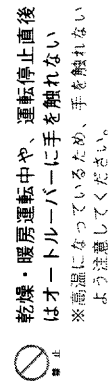 乾燥・暖房運転中や、運転停止直後
はオートルーバーに手を触れない
※高温になっているため、手を触れない
よう注意してください。
禁止